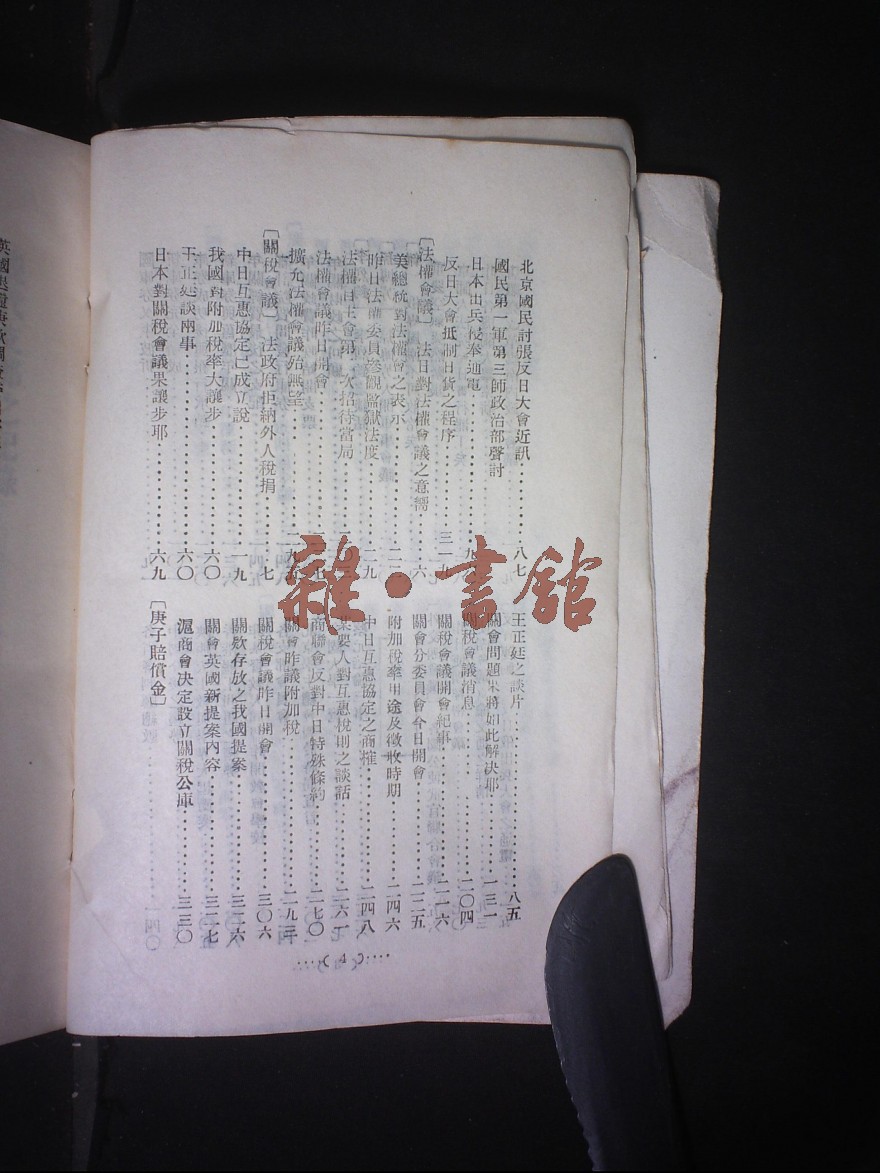 北京國民討張反日大會近訊⋯⋯八七
國民第一軍第三師政治部聲討
日本出兵侵奉通電⋯⋯九
反日大會抵制日貨之程序⋯⋯三一九
〔法權會議〕 法日對法權會議之意嚮⋯⋯六
美總統對法權會之表示⋯⋯二
昨日法權委員參觀監獄法度⋯⋯二九
法權自主會第一次招待當局⋯⋯
法權會議昨日開會⋯⋯
擴充法權會議殆無望⋯⋯二九
〔關稅會議〕 法政府拒納外人稅捐⋯⋯七
中日互惠協定已成立說⋯⋯一九
我國對附加稅率大讓步⋯⋯六〇
王正廷談兩事⋯⋯六〇
日本對關稅會議果讓步耶⋯⋯六九
王正廷之談片⋯⋯八五
關會問題果將如此解决耶⋯⋯一三一
關稅會議消息⋯⋯二〇四
關稅會議開會紀事⋯⋯二一六
關會分委員會今日開會⋯⋯二二五
附加稅率用途及徵收時期⋯⋯二四六
中日互惠協定之商榷⋯⋯二四八
某要人對互惠稅則之談話⋯⋯二六一
商聯會反對中日特殊條約⋯⋯二七〇
關會昨議附加稅⋯⋯二九三
關稅會議昨日開會⋯⋯三〇六
關欵存放之我國提案⋯⋯三二六
關會英國新提案內容⋯⋯三二七
滬商會決定設立關稅公庫⋯⋯三三〇
〔庚子賠償金〕
雜·書館